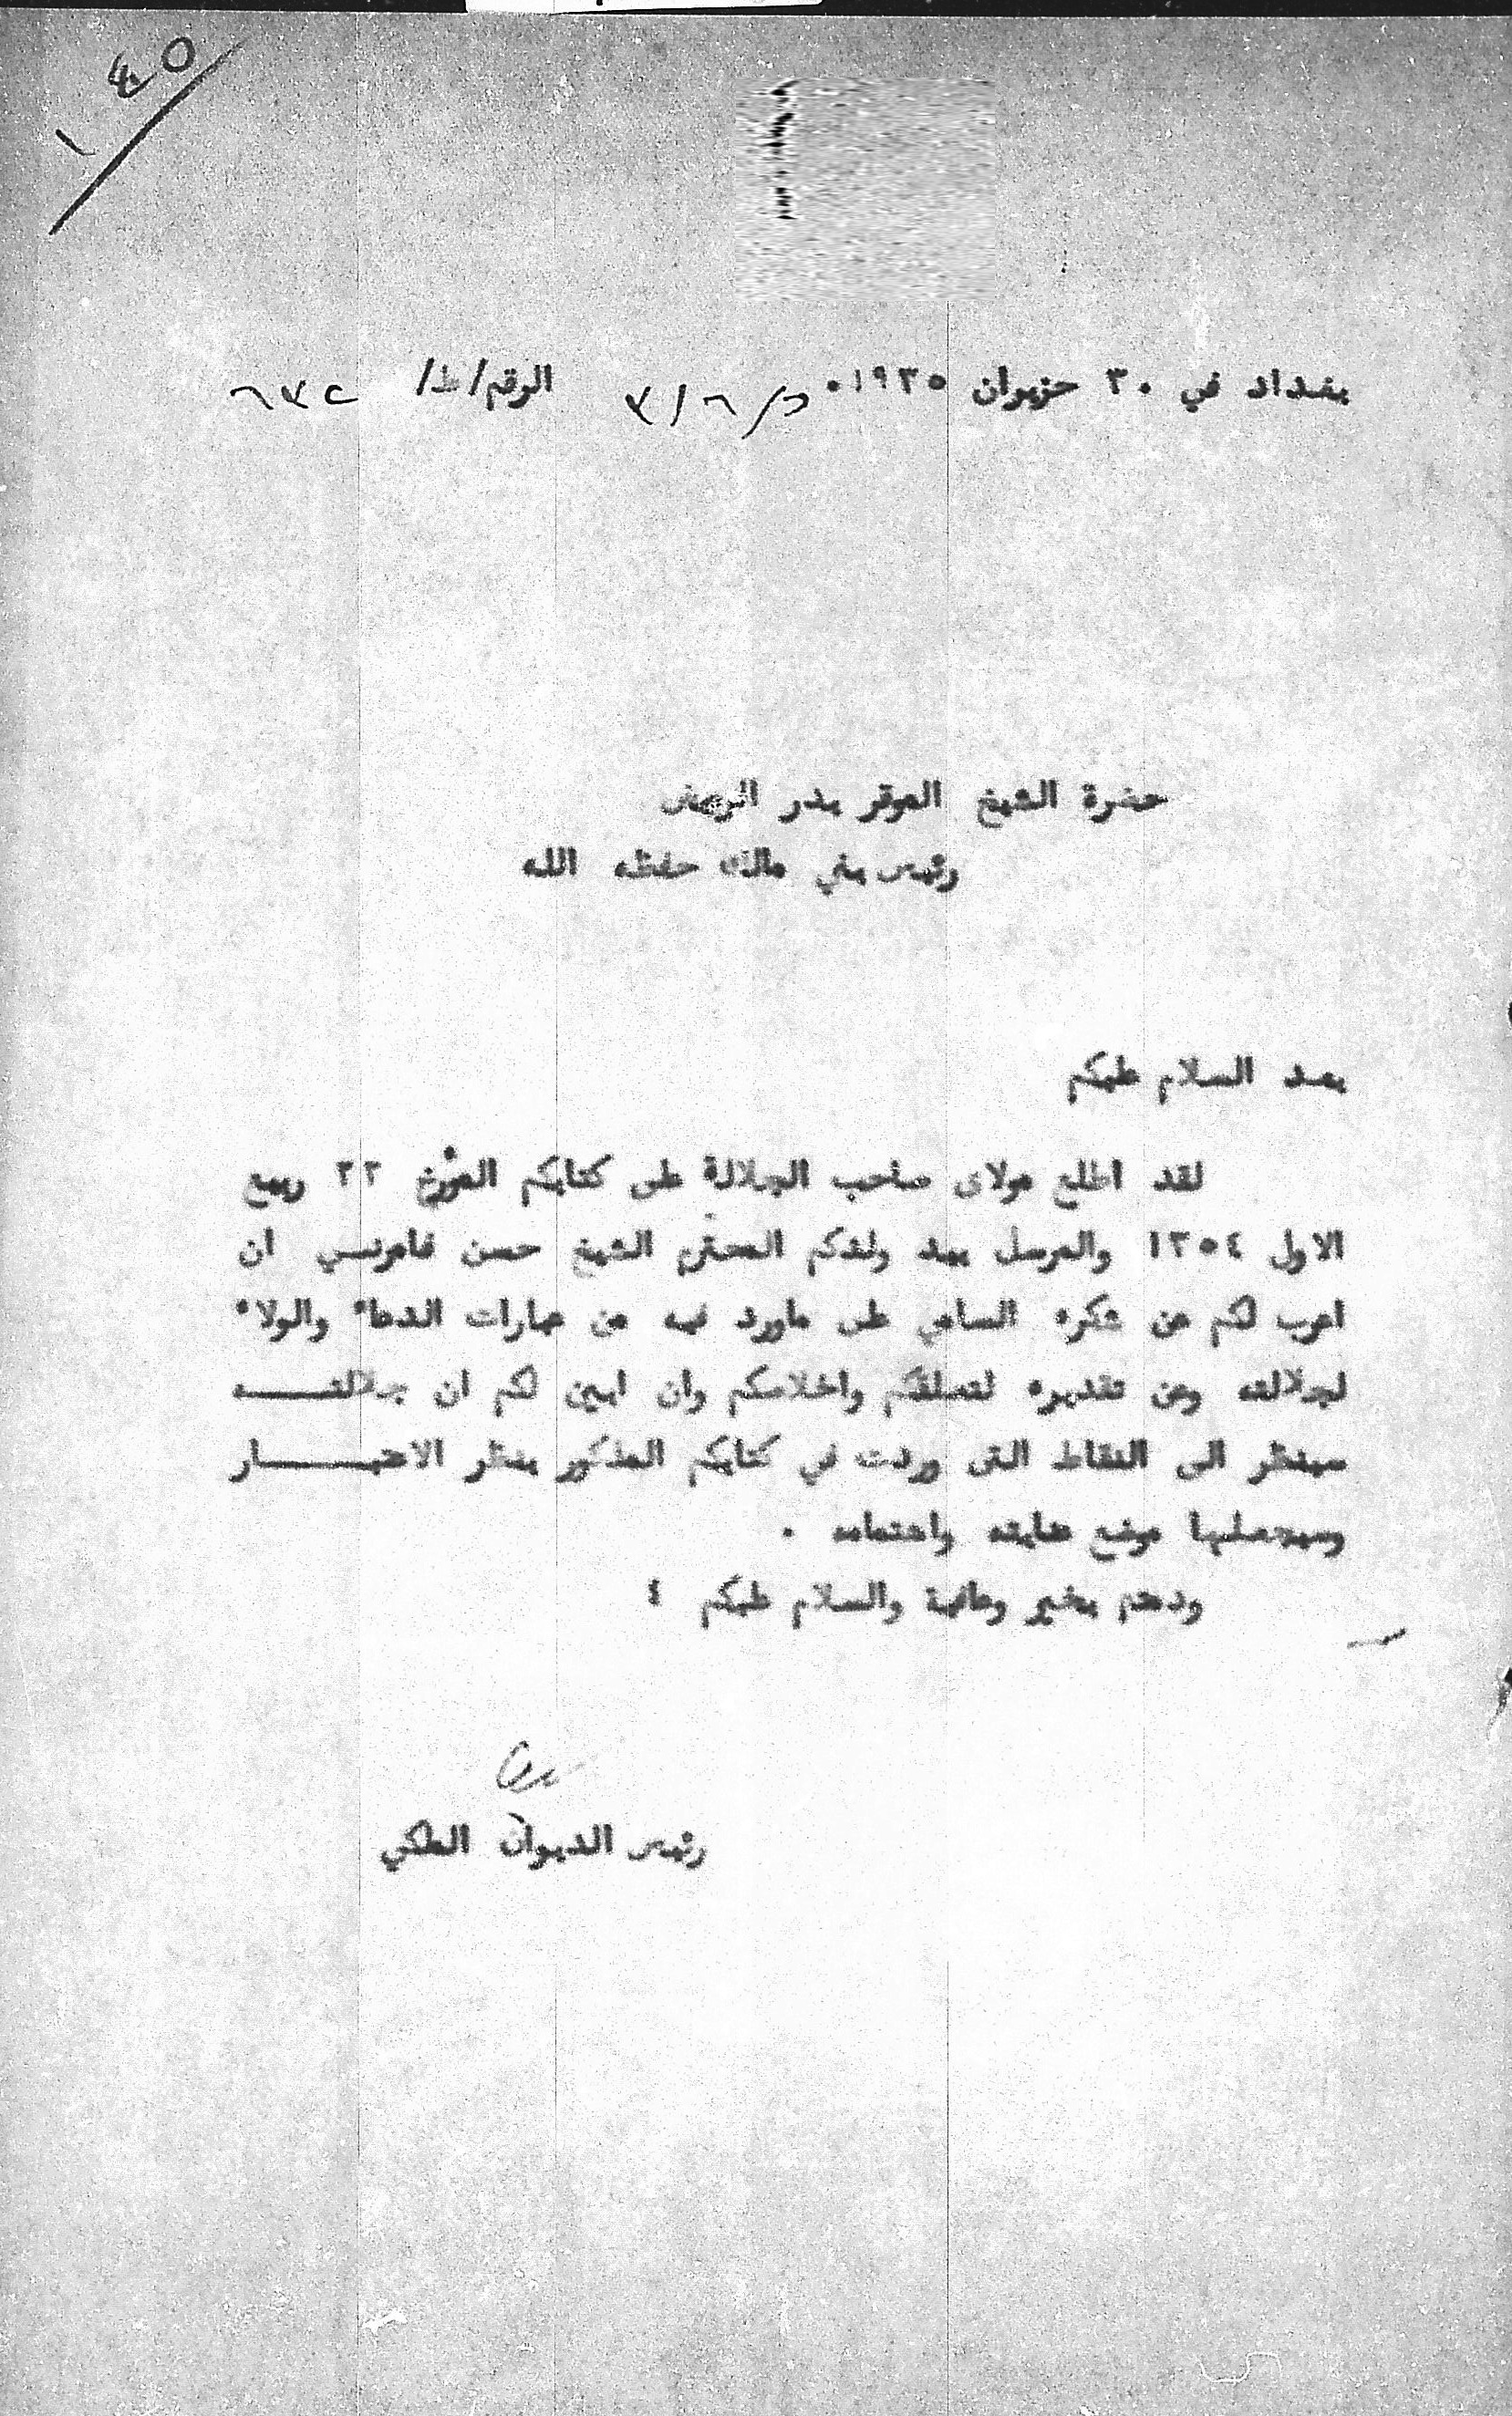 ٤٥
١
بغداد في ٣٠ حزيران ١٩٣٥٠ الرقم/ط/ ٦٣٢
حضرة الشيخ الموقر بدر الرميض
رئيس بني مالك حفظه الله
بعد السلام عليكم
لقد اطلع مولاى صاحب الجلالة على كتابكم المؤرخ ٢٢ ربيع
الاول ١٣٥٤ والمرسل بيد ولدكم المحترم الشيخ حسن فامرنــي ان
اعرب لكم عن شكره السامي على ماورد فيه من عبارات الدعاء والولاء
لجلالته وعن تقديره لتعلقكم واخلاصكم وان ابين لكم ان جلالتــــه
سينظر الى النقاط التى وردت في كتابكم المذكور بنظر الاعتبـــــار
وسيجعلها موضع عنايته واهتمامه .
ودمتم بخير وعافية والسلام عليكم ٤
رئيس الديوان الملكي